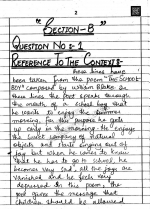 2
"SECTION-B"
QUESTION NO: 1
REFERENCE TO THE CONTEXT:-
These lines have
been taken from the poem "THE SCHOOL
BOY" composed by william Blake. In
these lines the poet speaks through
the mouth of a school boy that
he wants to enjoy the summer
morning, for this purpose he gets
up early in the morning. He enjoys
the sweet company of natural
objects and starts singing out of
joy, but when he comes to know
that he has to go to school, he
becomes very sad, all his joys are
vanished and he feels very
depressed. In this poem, the
poet gives the message that
children should be allowed